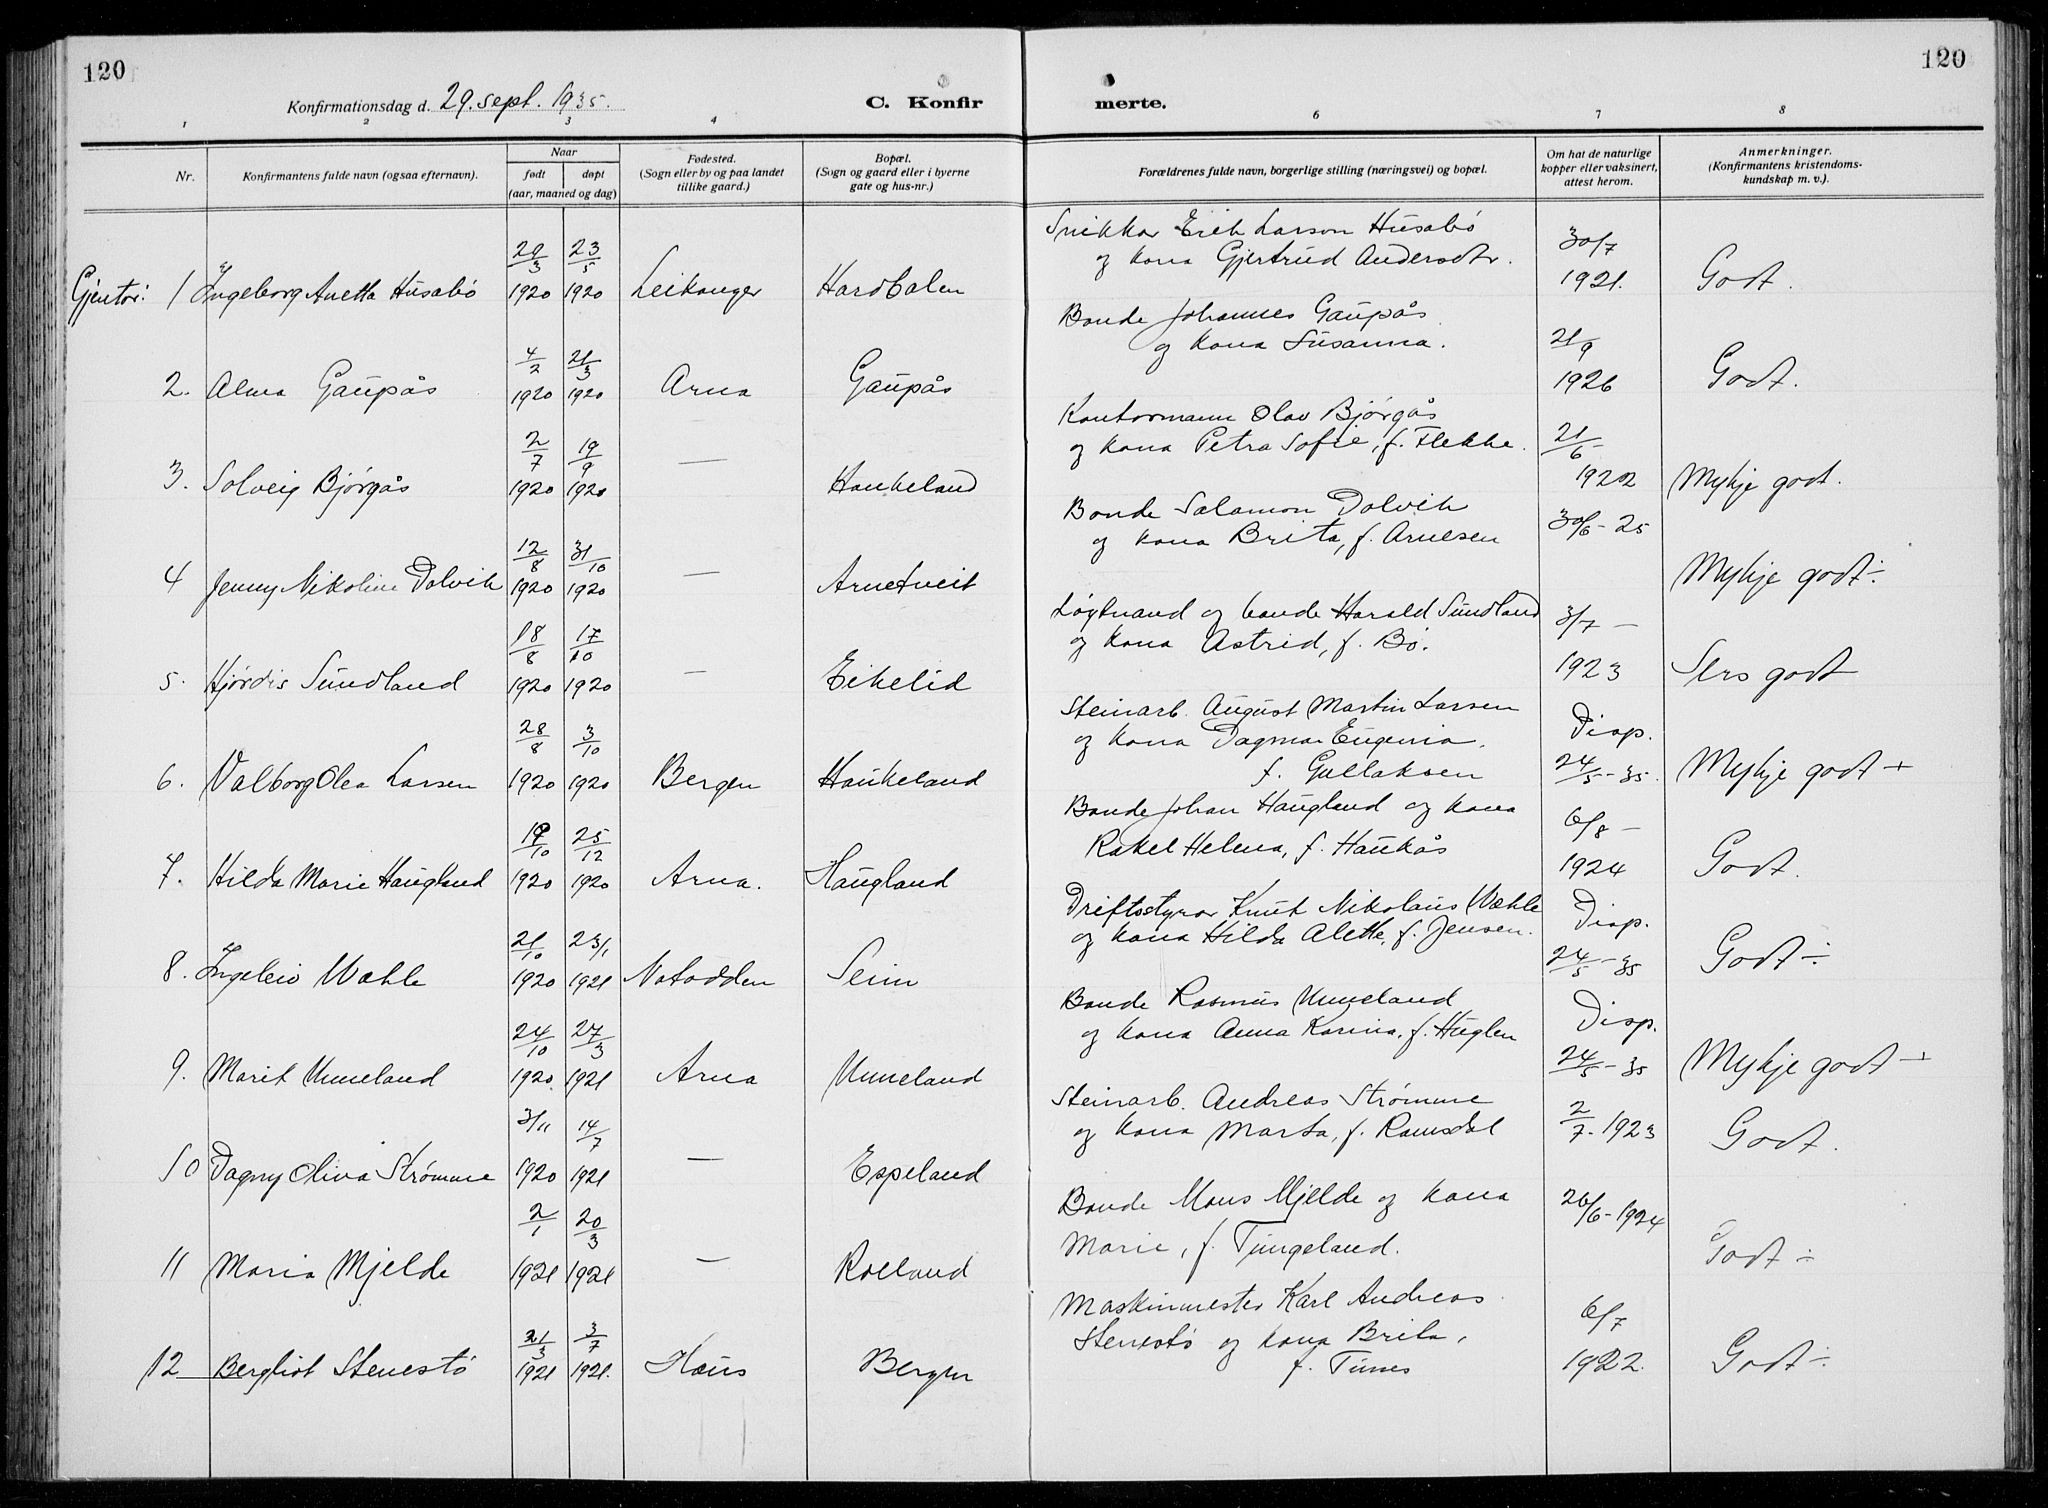 120
120
Konfirmationsdag d. 29. sept. 1935.
C. Konfirmerte.
1 2 3 4 6 7 8
Nr.
Konfirmantens fulde navn (ogsaa efternavn).
Naar
født
døpt
(aar, maaned og dag)
Fødested.
(Sogn eller by og paa landet
tillike gaard.)
Bopæl.
(Sogn og gaard eller i byerne
gate og hus-nr.)
Forældrenes fulde navn, borgerlige stilling (næringsvei) og bopæl.
Om hat de naturlige
kopper eller vaksinert,
attest herom.
Anmerkninger.
(Konfirmantens kristendoms-
kundskap m. v.).
Gjentor:
Snikkar Erik Larson Husabø
29/3 23/5 og kona Gjertrud Andersdtr. 30/7
1 Ingeborg Anetta Husabø 1920 1920 Leikanger 1921. Godt.
Bonde Johannes Gaupås
4/2 21/3 og kona Susanna. 21/9
2. Alma Gaupås 1920 1920 Arna Gaupås 1926 Godt.
Kontormann Olav Bjørgås
2/7 19/9 og kona Petra Sofie, f. Flekke. 21/6-
3. Solveig Bjørgås 1920 1920 — Haukeland 1922 Mykje godt.
Bonde Salamon Dalvik 30/6-25
12/8 31/10 og kona Brita, f. Arnesen
4 Jenny Nikoline Dalvik 1920 1920 — Arnetveit Mykje godt ÷
Løytnand og bonde Harald Sundland 3/7 —
18/8 17/10 og kona Astrid, f. Bø.
5. Hjørdis Sundland 1920 1920 — Eikelid 1923 Sers godt
Steinarb. August Martin Larsen Disp.
28/8 3/10 og kona Dagmar Eugenia,
f. Gullaksen 24/5-35.
6. Valborg Olea Larsen 1920 1920 Bergen Haukeland Mykje godt +
Bonde Johan Haugland og kona 6/8 —
10 25/12 Rakel Helena, f. Haukås
7. Hilda Marie Haugland 1920 1920 Arna. Haugland 1924 Godt.
Driftsstyrar Knut Nikolaus Wæhle Disp.
21/10 23/1 og kona Hilda Alette, f. Jensen.
8. Ingeleiv Wæhle 1920 1921 Notodden Seim 24/5-35 Godt ÷
Bonde Rasmus Unneland Disp.
24/10 27/3 og kona Anna Karina, f. Huglen
9. Marit Unneland 1920. 1921 Arna Unneland 24/5-35 Mykje godt ÷
Steinarb. Andreas Strømme
3/11 14/7 og kona Marta, f. Ramsdal 2/7-1923
10 Dagny Oliva Strømme 1920 1921 — Espeland Godt.
Bonde Mons Mjelde og kona 26/6-1924
2/1 20/3 Marie, f. Tungeland.
11 Maria Mjelde 1921 1921 — Rolland Godt ÷
Maskinmester Karl Andreas 6/7
21/3 3/7 Stenestø og kona Brita,
f. Tunes
12 Bergliot Stenestø 1921 1921. Haus Bergen 1922. Godt ÷